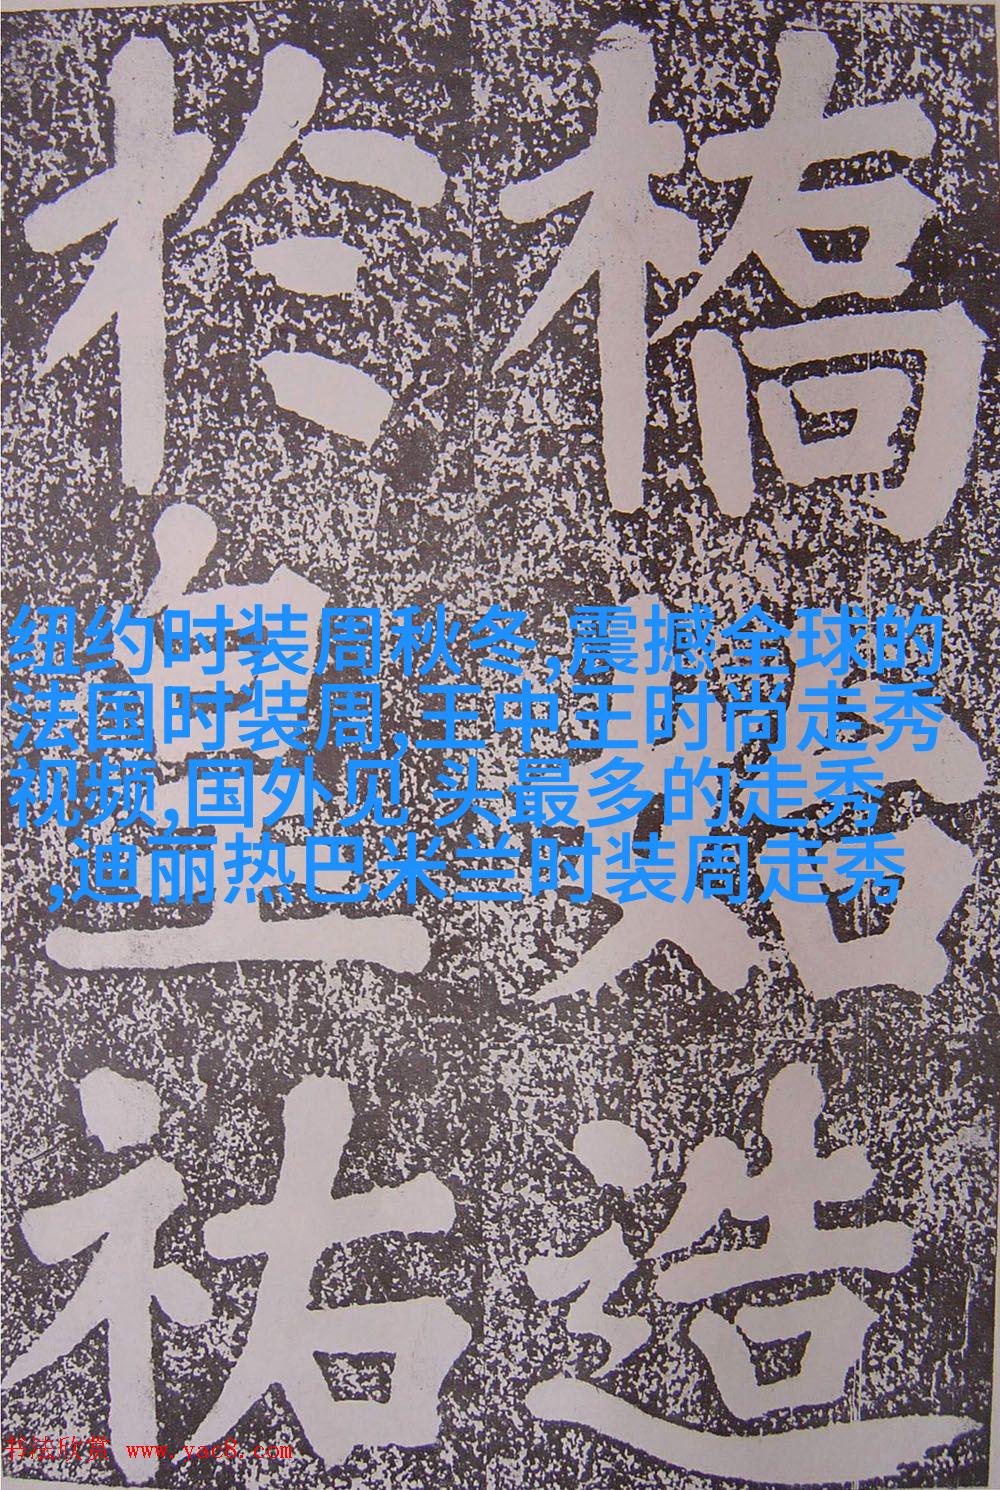 橋始造
於皇祐
纽约时装周秋冬,震撼全球的
法国时装周,王中王时尚走秀
视频,国外见 头最多的走秀
,迪丽热巴米兰时装周走秀
书法欣赏 www.yac8.com